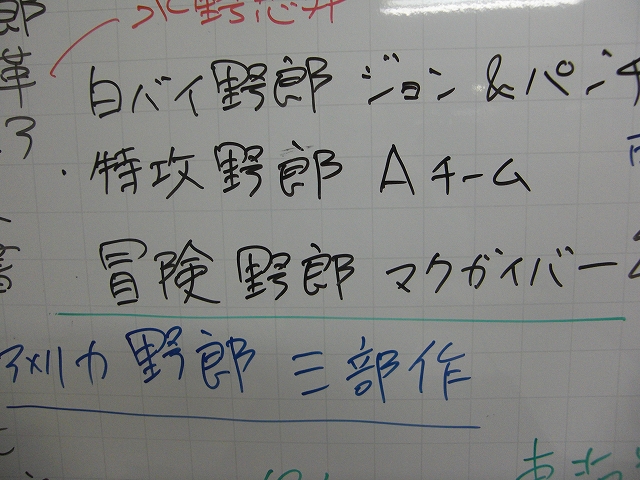 郎
水野忠
革
白バイ野郎 ジョン&パンチ
・特攻野郎 Aチーム
冒険野郎 マクガイバー
アメリカ野郎 三部作